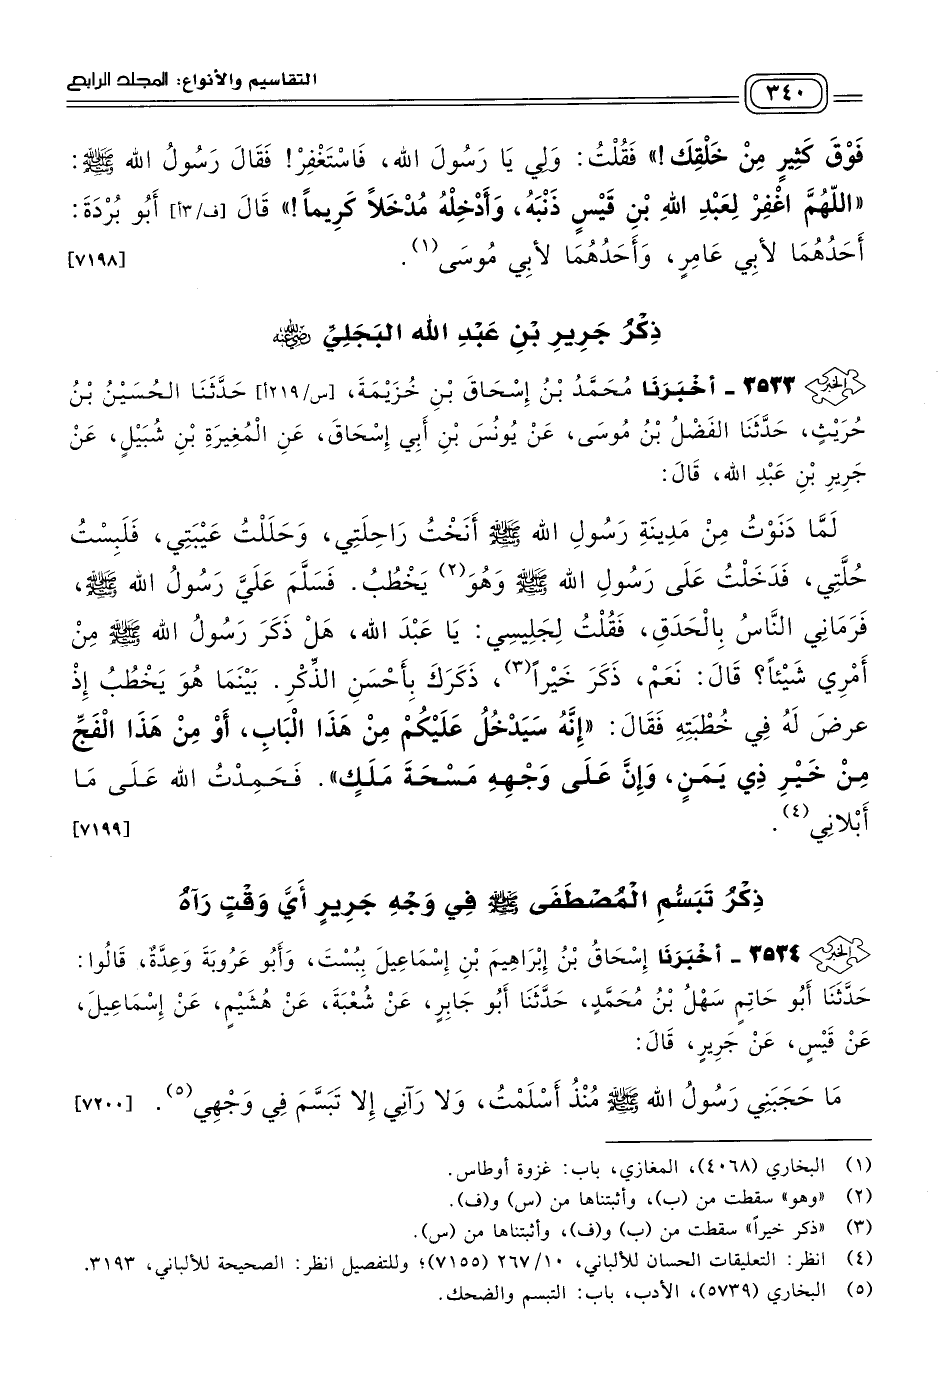 التقاسيم والأنواع: المجلد الرابع
٣٤٠
فَوْقَ كَثِيرٍ مِنْ خَلْقِكَ!» فَقُلْتُ: وَلِي يَا رَسُولَ الله، فَاسْتَغْفِرْ! فَقَالَ رَسُولُ الله ﷺ:
«اللّهُمَّ اغْفِرْ لِعَبْدِ اللهِ بْنِ قَيْسٍ ذَنْبَهُ، وَأَدْخِلْهُ مُدْخَلاً كَرِيماً!» قَالَ [ف/٣أ] أَبُو بُرْدَةَ:
أَحَدُهُمَا لأبِي عَامِرٍ، وَأَحَدُهُمَا لأبِي مُوسَى(١). [٧١٩٨]
ذِكْرُ جَرِيرِ بْنِ عَبْدِ الله البَجَلِيِّ رضي الله عنه
الخبر ٣٥٣٣ ـ أخْبَرَنَا مُحَمَّدُ بْنُ إسْحَاقَ بْنِ خُزَيْمَةَ، [س/٢١٩أ] حَدَّثَنَا الحُسَيْنُ بْنُ
حُرَيْثٍ، حَدَّثَنَا الفَضْلُ بْنُ مُوسَى، عَنْ يُونُسَ بْنِ أَبِي إسْحَاقَ، عَنِ الْمُغِيرَةِ بْنِ شُبَيْلٍ، عَنْ
جَرِيرِ بْنِ عَبْدِ الله، قَالَ:
لَمَّا دَنَوْتُ مِنْ مَدِينَةِ رَسُولِ الله ﷺ أَنَخْتُ رَاحِلَتِي، وَحَلَلْتُ عَيْبَتِي، فَلَبِسْتُ
حُلَّتِي، فَدَخَلْتُ عَلَى رَسُولِ الله ﷺ وَهُوَ(٢) يَخْطُبُ. فَسَلَّمَ عَلَيَّ رَسُولُ الله ﷺ،
فَرَمَانِي النَّاسُ بِالْحَدَقِ، فَقُلْتُ لِجَلِيسِي: يَا عَبْدَ الله، هَلْ ذَكَرَ رَسُولُ الله ﷺ مِنْ
أَمْرِي شَيْئاً؟ قَالَ: نَعَمْ، ذَكَرَ خَيْراً(٣)، ذَكَرَكَ بِأَحْسَنِ الذِّكْرِ. بَيْنَمَا هُوَ يَخْطُبُ إذْ
عرضَ لَهُ فِي خُطْبَتِهِ فَقَالَ: «إنَّهُ سَيَدْخُلُ عَلَيْكُمْ مِنْ هَذَا الْبَابِ، أَوْ مِنْ هَذَا الْفَجِّ
مِنْ خَيْرِ ذِي يَمَنٍ، وَإِنَّ عَلَى وَجْهِهِ مَسْحَةَ مَلَكٍ». فَحَمِدْتُ الله عَلَى مَا
أَبْلانِي(٤). [٧١٩٩]
ذِكْرُ تَبَسُّمِ الْمُصْطَفَى ﷺ فِي وَجْهِ جَرِيرٍ أَيَّ وَقْتٍ رَآهُ
الخبر ٣٥٣٤ ـ أخْبَرَنَا إسْحَاقُ بْنُ إبْرَاهِيمَ بْنِ إسْمَاعِيلَ بِبُسْتَ، وَأَبُو عَرُوبَةَ وَعِدَّةٌ، قَالُوا:
حَدَّثَنَا أَبُو حَاتِمٍ سَهْلُ بْنُ مُحَمَّدٍ، حَدَّثَنَا أَبُو جَابِرٍ، عَنْ شُعْبَةَ، عَنْ هُشَيْمٍ، عَنْ إسْمَاعِيلَ،
عَنْ قَيْسٍ، عَنْ جَرِيرٍ، قَالَ:
مَا حَجَبَنِي رَسُولُ الله ﷺ مُنْذُ أَسْلَمْتُ، وَلا رَآنِي إلا تَبَسَّمَ فِي وَجْهِي(٥). [٧٢٠٠]
(١) البخاري (٤٠٦٨)، المغازي، باب: غزوة أوطاس.
(٢) «وهو» سقطت من (ب)، وأثبتناها من (س) و(ف).
(٣) «ذكر خيراً» سقطت من (ب) و(ف)، وأثبتناها من (س).
(٤) انظر: التعليقات الحسان للألباني، ١٠/ ٢٦٧ (٧١٥٥)؛ وللتفصيل انظر: الصحيحة للألباني، ٣١٩٣.
(٥) البخاري (٥٧٣٩)، الأدب، باب: التبسم والضحك.